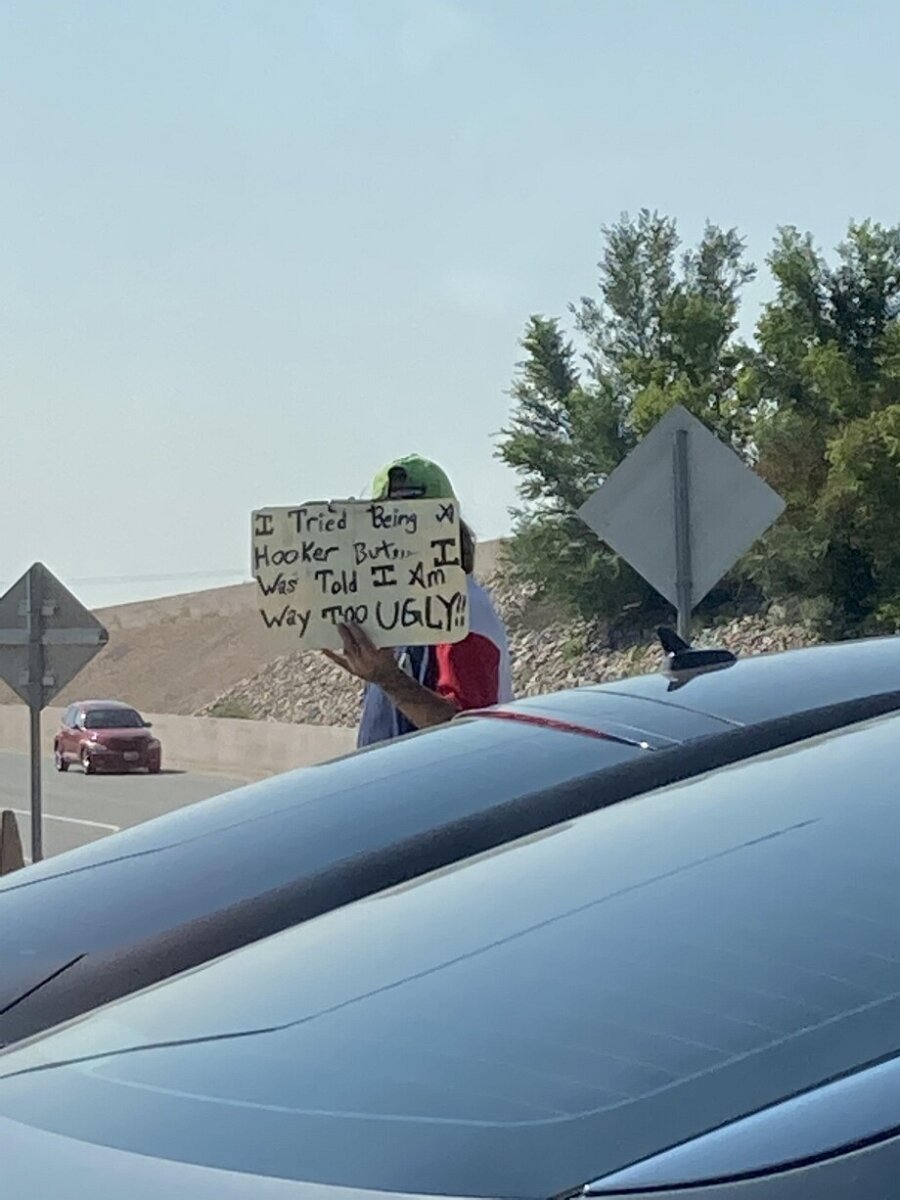 I Tried Being A
Hooker But,,,.. I
Was Told I Am
Way TOO UGLY!!